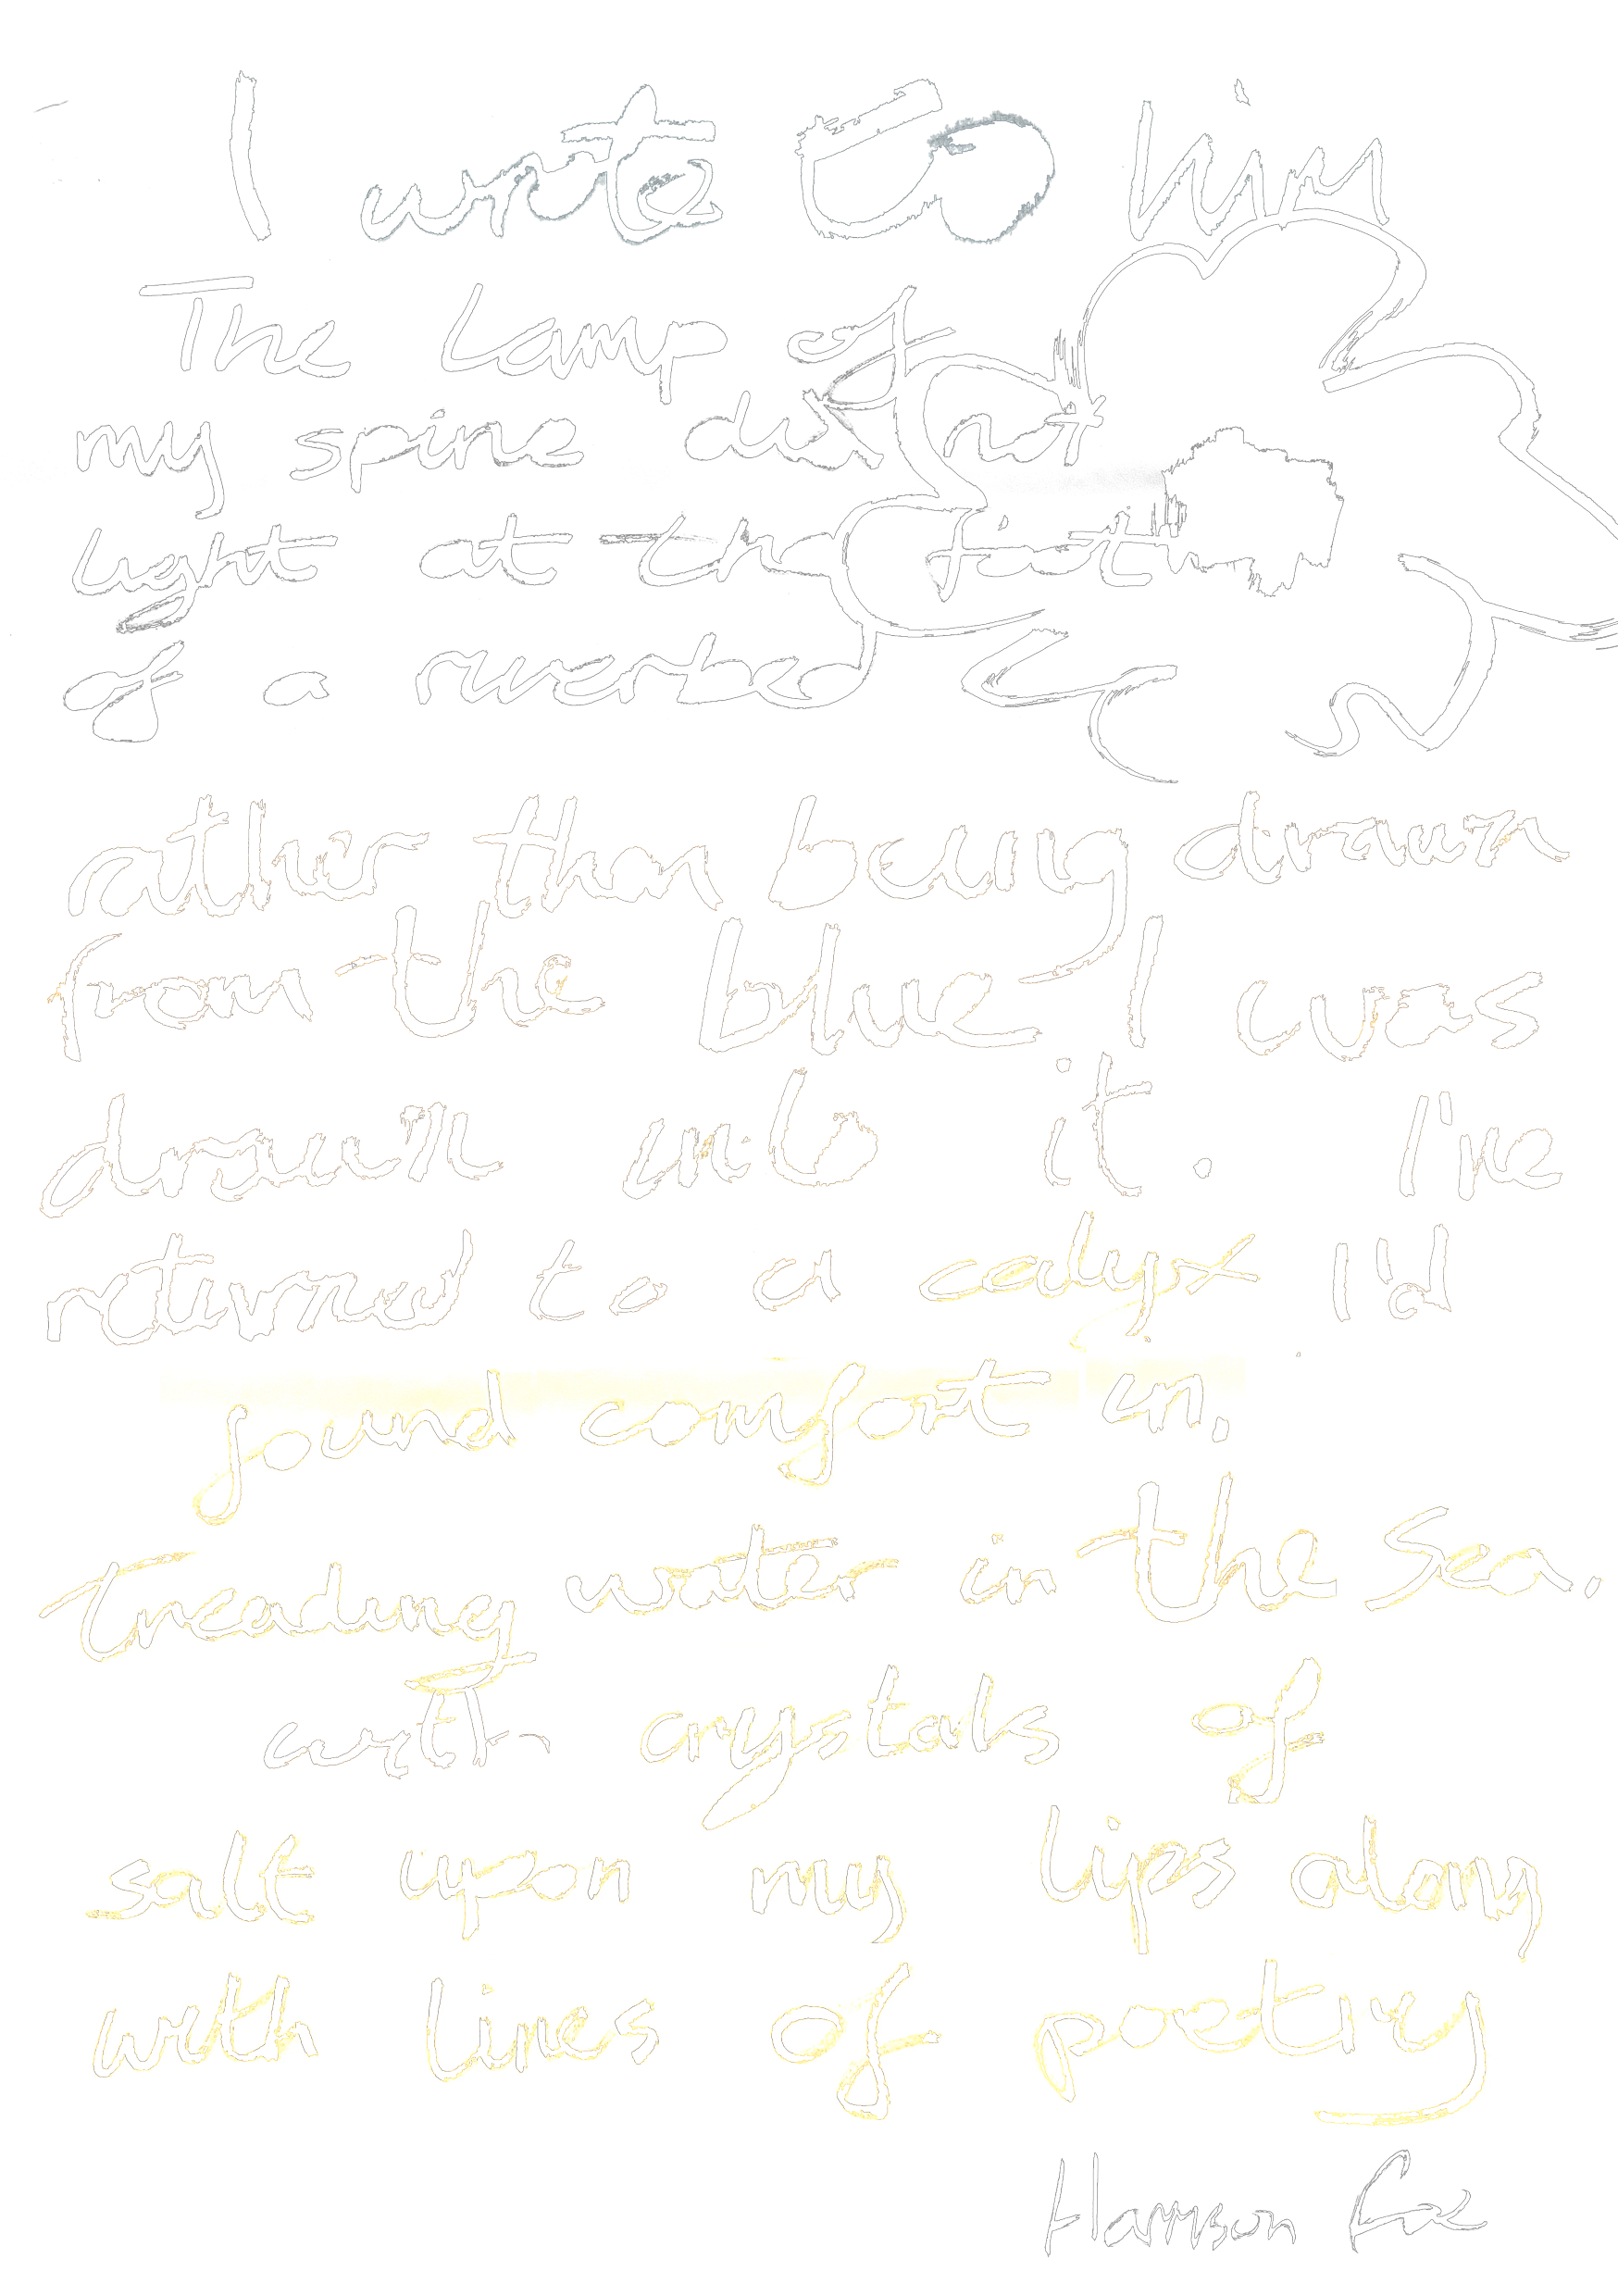 I wrote to him
The Lamp of
my spine did not
light at the
of a riverbed
rather than being drawn
from the blue I was
drawn into it. I've
returned to a calyx I'd
found comfort in,
treading water in the sea.
with crystals of
salt upon my lips along
with lines of poetry
Harrison Fox